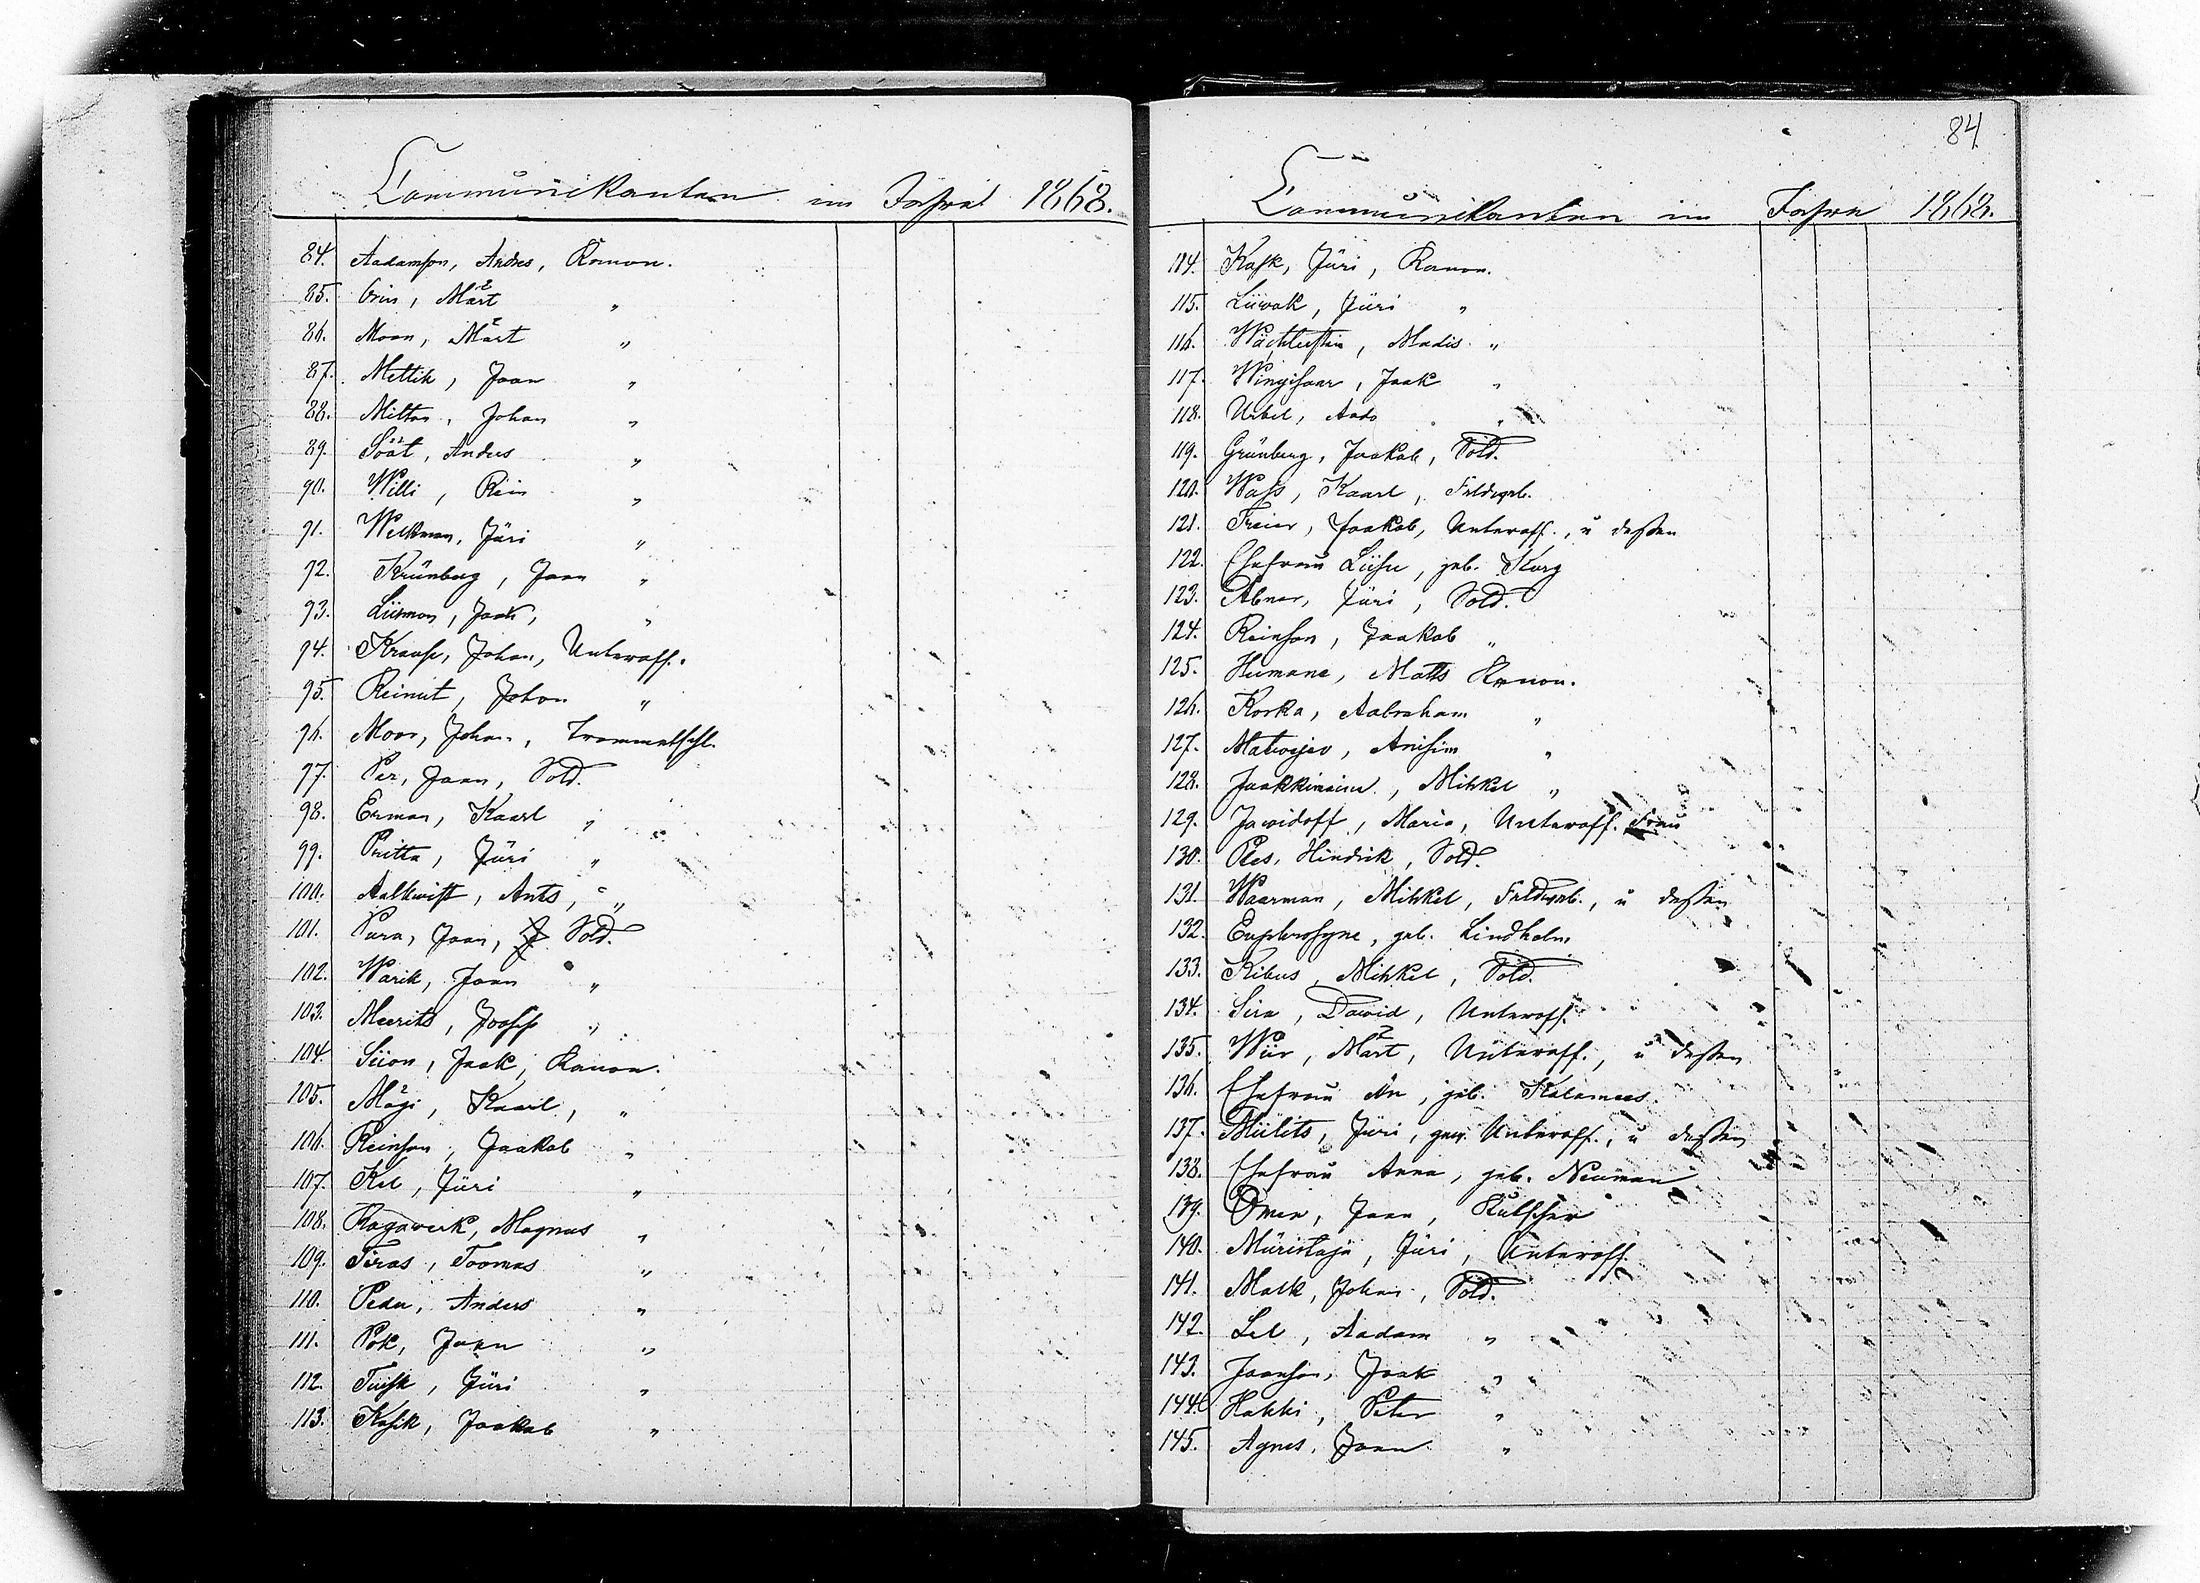 Communikanten im Jahre 1868.
84. Aadamson, Andres, Kanon.
85. Orin, Märt "
86. Moon, Märt "
87. Mettik, Jaan "
88. Miltas, Johan "
89. Söät, Anders "
90. Willi, Rein "
91. Welkman, Jüri "
92. Krünberg, Jaan "
93. Liiwman, Jaak, "
94. Krause, Johan, Unteroff.
95. Reinut, Johan "
96. Moor, Johan, Trommelschl.
97. Per, Jaan, Sold.
98. Erman, Kaarl "
99. Pritta, Jüri "
100. Aallwist, Ants, "
101. Para, Jaan, Sold.
102. Warik, Jaan "
103. Meerits, Joosep "
104. Siion, Jaak, Kanon.
105. Mägi, Kaarl, "
106. Reinson, Jaakob "
107. Kel, Jüri "
108. Ragawerk, Magnus "
109. Tiras, Toomas "
110. Peder, Anders "
111. Pok, Jaan "
112. Tuisk, Jüri "
113. Kasik, Jaakob "
84
Communikanten im Jahre 1868.
114. Kask, Jüri, Kanon.
115. Liiwak, Jüri "
116. Wächterstein, Madis "
117. Wingisaar, Jaak "
118. Urbel, Aado "
119. Grünberg, Jaakob, Sold.
120. Wass, Kaarl, Feldwgb.
121. Freier, Jaakob, Unteroff., u dessen
122. Ehefrau Liisu, geb. Kurg
123. Abner, Jüri, Sold.
124. Reinson, Jaakob "
125. Humane, Matts Kanon.
126. Korka, Aabraham "
127. Matwejew, Anisim "
128. Jaakkinainen, Mihkel "
129. Jawidoff, Maria, Unteroff. Frau
130. Pees, Hindrik, Sold.
131. Waarman, Mihkel, Feldwgb., u dessen
132. Euphrosyne, geb. Lindholm
133. Kibus, Mihkel, Sold.
134. Sira, Dawid, Unteroff.
135. Wiir, Märt, Unteroff., u dessen
136. Ehefrau An, geb. Kalamees.
137. Miilits, Jüri, gew. Unteroff., u dessen
138. Ehefrau Anna, geb. Neuman
139. Onen, Jaan, Kutscher
140. Müristaja, Jüri, Unteroff.
141. Mark, Johan, Sold.
142. Lel, Aadam "
143. Jaanson, Jaak "
144. Hakki, Peter "
145. Agnes, Jaan "